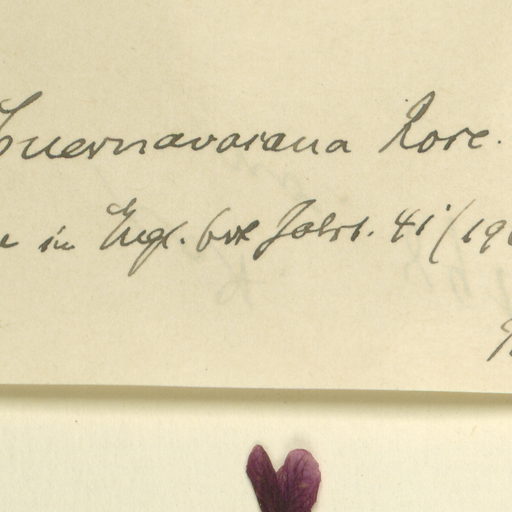 Cuernavacana Rose.
in Engl. bot Jahrb. 41/19